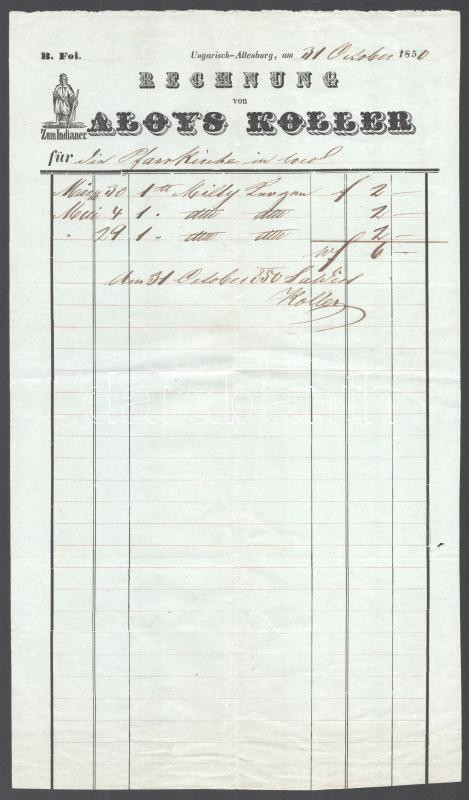 B. Fol. Ungarisch-Altenburg, am 31 October 1850
RECHNUNG
von
Zum Indianer. ALOYS KOLLER
für die Pfarrkirche in
März 30 1 Milly f 2 —
Mai 4 1 " dtto dtto 2 —
" 29 1 " dtto dtto 2 —
f 6 —
Am 31 October 850 Saldirt
Koller
darabanth